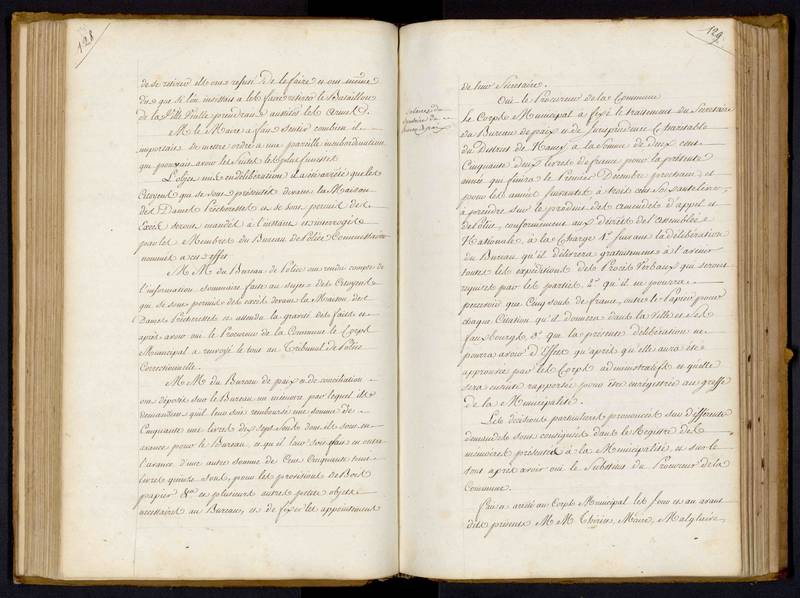 128
de se retirer ils ont refusé de le faire et ont même
dit que si l'on insistait à les faire retirer le Bataillon
de la Ville Vieille prendrait aussitôt les armes.
M. le Maire a fait sentir combien il
importait de mettre ordre à une pareille insubordination
qui pourrait avoir les suites les plus funestes
L'objet mis en délibération il a été arrêté que les
Citoyens qui se sont présentés devant la Maison
des Dames Prêcheresses et se sont permis des
Excès seront mandés à l'instant et interrogés
par les Membres du Bureau de Police Commissaires
nommés à cet effet
M. M. du Bureau de Police ont rendu compte de
l'information sommaire faite au sujet des Citoyens
qui se sont permis des excès devant la Maison des
Dames Prêcheresses et attendu la gravité des faits et
après avoir ouï le Procureur de la Commune le Corps
Municipal a renvoyé le tout au Tribunal de Police
Correctionnelle.
M. M. du Bureau de paix et de conciliation
ont déposé sur le Bureau un mémoire par lequel ils
demandent qu'il leur soit remboursé une somme de
Cinquante une livres dix sept sols dont ils sont en
avance pour le Bureau, et qu'il leur soit fait en outre
l'avance d'une autre somme de Cent Cinquante
livres quinze sols, pour les provisions de Bois
papier &ca et plusieurs autres petits objets
nécessaires au Bureau, et de fixer les appointements
129
de leur Secrétaire.
Ouï le Procureur de la Commune
le Corps Municipal a fixé le traitement du Secrétaire
du Bureau de paix et de Jurisprudence Charitable
du District de Nancy à la somme de deux cent
Cinquante deux livres de france pour la présente
année qui finira le Premier Décembre prochain, et
pour les années suivantes à trois cent soixante livres
à prendre sur le produit des amendes d'appel et
de Police, conformément aux décrets de l'assemblée
Nationale, à la Charge 1°. suivant la délibération
du Bureau qu'il délivrera gratuitement à l'avenir
toutes les expéditions des Procès Verbaux qui seront
requises par les parties 2°. qu'il ne pourra
percevoir que Cinq sous de france, outre le Papier pour
chaque Citation qu'il donnera dans la Ville et ses
fauxbourgs 3°. que la présente délibération ne
pourra avoir d'Effet qu'après qu'elle aura été
approuvée par les Corps administratifs et qu'elle
sera ensuite rapportée pour être enregistrée au greffe
de la Municipalité.
Les décisions particulières prononcées sur différentes
demandes sont consignées dans le Registre des
mémoires présentés à la Municipalité, et sur le
tout après avoir ouï le Substitut du Procureur de la
Commune.
Fait et arrêté au Corps Municipal les Jour et an avant
dits présents M. M. Thiériet, Maire, Malglaive,